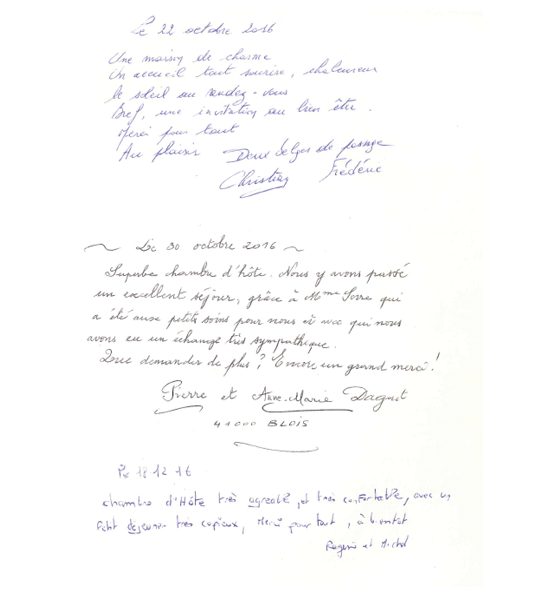 Le 22 octobre 2016
Une maison de charme
Un accueil tout sourire, chaleureux
le soleil au rendez-vous
Bref, une invitation au bien être.
Merci pour tout
Au plaisir Deux belges de passage
Christian Frédéric
~ Le 30 octobre 2016 ~
Superbe chambre d'hôte. Nous y avons passé
un excellent séjour, grâce à Mme Serre qui
a été aux petits soins pour nous et avec qui nous
avons eu un échange très sympathique.
Que demander de plus ? Encore un grand merci !
Pierre et Anne-Marie
41000 BLOIS
Le 18 12 16
chambre d'Hôte très agreable, et très confortable, avec un
Petit dejeuner très copieux, Merci pour tout, à bientot
et Michel